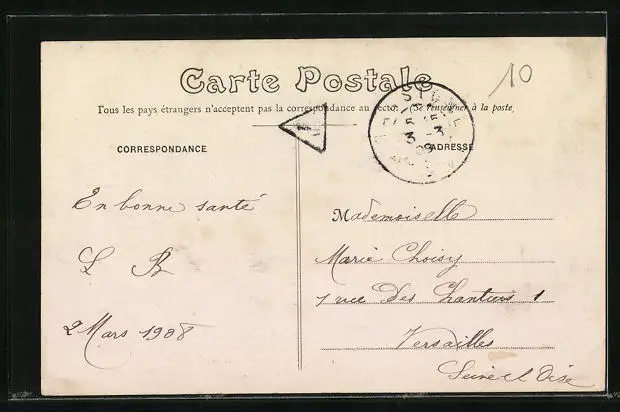 10
Carte Postale
Tous les pays étrangers n'acceptent pas la correspondance au recto. (Se renseigner à la poste)
CORRESPONDANCE
ADRESSE
En bonne santé
L B
2 Mars 1908
Mademoiselle
Marie Choisy
7 rue Des Chantiers 1
Versailles
Seine et Oise